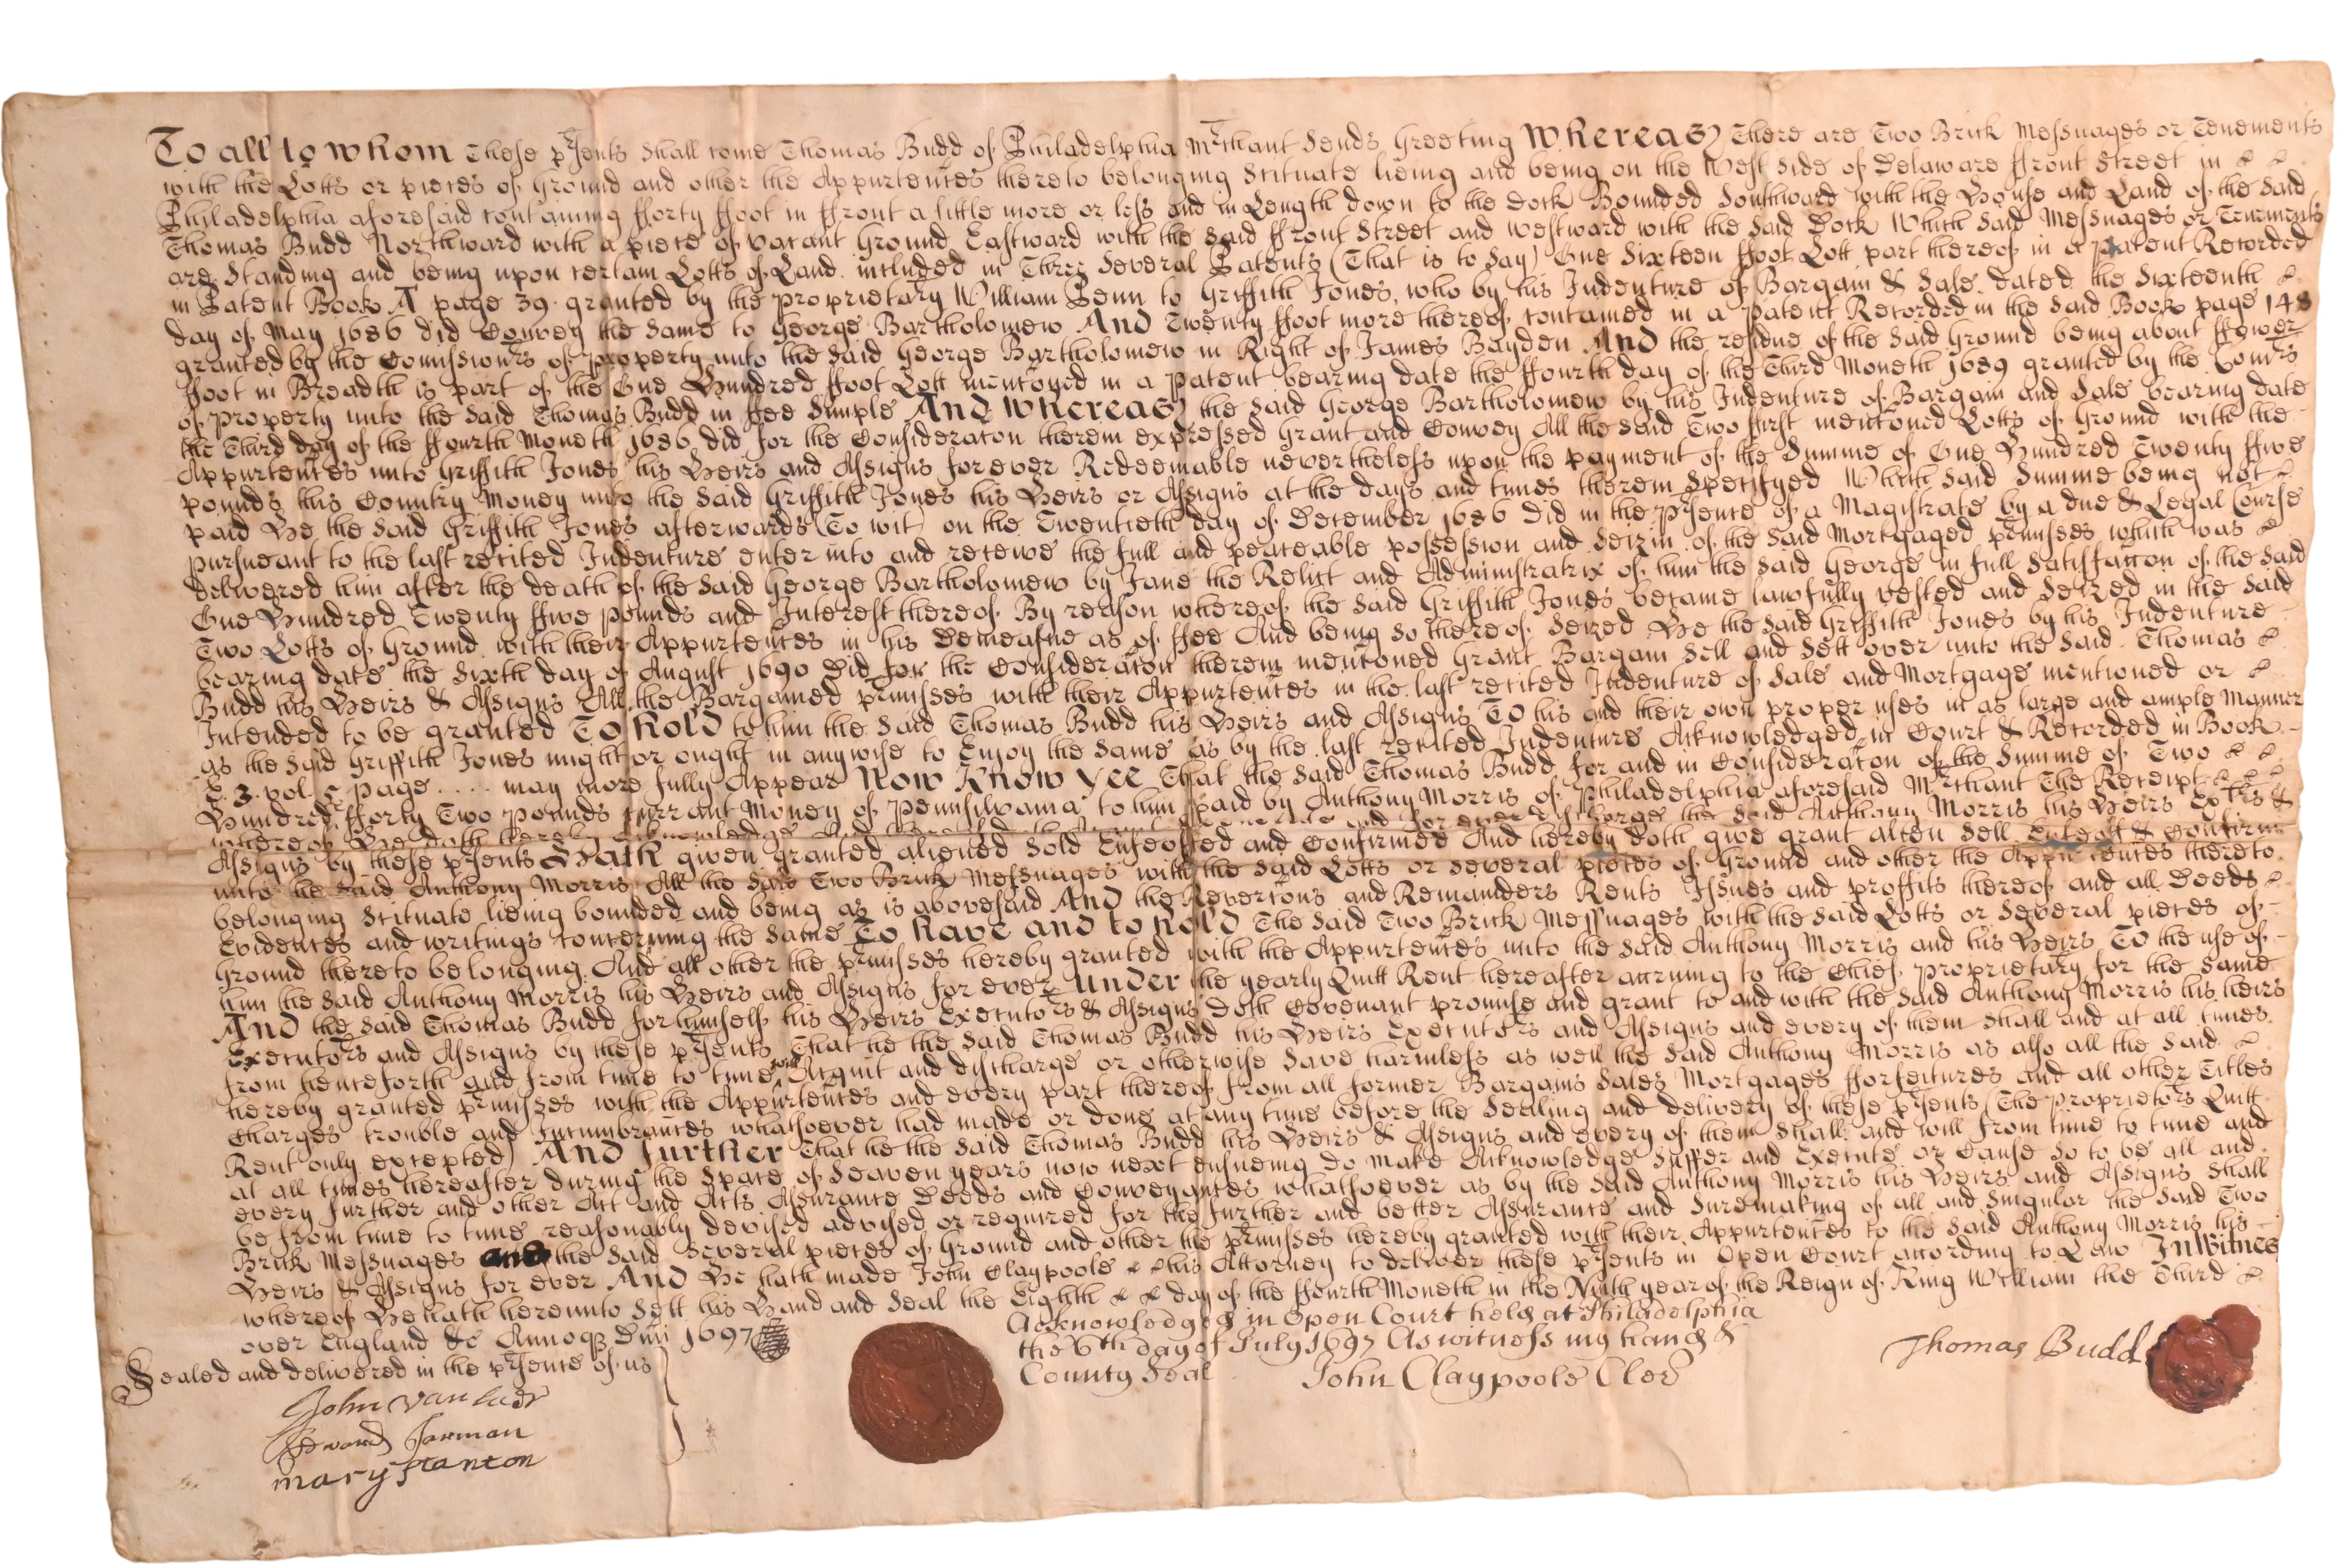 To all to whom These pʳsents Shall come Thomas Budd of Philadelphia Mʳchant Sends Greeting Whereas There are Two Brick Messuages or Tenements
with the Lotts or pieces of Ground and other the Appurteñces thereto belonging Scituate lieing and being on the West Side of Delaware ffront Street in
Philadelphia aforesaid containing fforty ffoot in ffront a little more or less and in Length down to the Dock Bounded Southward with the House and Land of the Said
Thomas Budd Northward with a piece of vacant Ground Eastward with the Said ffront Street and westward with the Said Dock Which Said Messuages or Tenements
are Standing and being upon certain Lotts of Land included in Three Several Patents (That is to Say) One Sixteen ffoot Lott part thereof in a Patent Recorded
in Patent Book A page 39 granted by the proprietary William Penn to Griffith Jones, who by his Indenture of Bargain & Sale dated the Sixteenth
day of May 1686 did Convey the Same to George Bartholomew And Twenty ffoot more thereof contained in a Patent Recorded in the Said Book page 148
granted by the Comissionʳs of property unto the Said George Bartholomew in Right of James Bayden And the residue of the Said Ground being about ffower
ffoot in Breadth is part of the One Hundred ffoot Lott mentioned in a Patent bearing date the ffourth day of the Third Moneth 1689 granted by the Comʳs
of Property unto the Said Thomas Budd in ffee Simple And Whereas the Said George Bartholomew by his Indenture of Bargain and Sale bearing date
the Third day of the ffourth Moneth 1686 did for the Consideracon therein expressed Grant and Convey All the Said Two ffirst mentoned Lotts of Ground with the
Appurteñces unto Griffith Jones his Heirs and Assigns for ever Redeemable nevertheless upon the payment of the Summe of One Hundred Twenty ffive
pounds this Country Money unto the Said Griffith Jones his Heirs or Assigns at the days and times therein Specifyed Which Said Summe being not
paid He the Said Griffith Jones afterwards (To wit) on the Twentieth day of December 1686 Did in the pʳsence of a Magistrate by a due & Legal Course
pursueant to the last recited Indenture enter into and receive the full and peaceable possession and Seizin of the Said Mortgaged pʳmisses which was
delivered him after the death of the Said George Bartholomew by Jane the Relict and Administratrix of him the Said George in full Satisfaction of the Said
One Hundred Twenty ffive pounds and Interest thereof By reason whereof the Said Griffith Jones became lawfully vested and Seized in the Said
Two Lotts of Ground with their Appurteñces in his Demeasne as of ffee And being So thereof Seized He the Said Griffith Jones by his Indenture
bearing date the Sixth day of August 1690 Did for the Consideraton therein mentoned Grant Bargain Sell and Sett over unto the Said Thomas
Budd his Heirs & Assigns All the Bargained pʳmisses with their Appurteñces in the last recited Indenture of Sale and Mortgage mentioned or
Intended to be granted To hold to him the Said Thomas Budd his Heirs and Assigns To his and their own proper uses in as large and ample Manner
as the Said Griffith Jones might or ought in anywise to Enjoy the Same as by the last recited Indenture Acknowledged in Court & Recorded in Book
E 3 vol 5 page .... may more fully Appear Now Know Yee That the Said Thomas Budd for and in Consideraton of the Summe of Two
Hundred fforty Two Pounds Currant Money of Pennsilvania to him paid by Anthony Morris of Philadelphia aforesaid Mʳchant The Receipt
whereof He doth hereby Acknowledge and for ever discharge the Said Anthony Morris his Heirs Exʳs &
Assigns by these pʳsents Hath given granted aliened Sold Enfeoffed and Confirmed And hereby doth give grant alien Sell Enfeoff & Confirm
unto the Said Anthony Morris All the Said Two Brick Messuages with the Said Lotts or Several pieces of Ground and other the Appurteñces thereto
belonging Scituate lieing bounded and being as is abovesaid And the Revertons and Remainders Rents Issues and proffits thereof and all Deeds
Evidences and writings concerning the Same To have and to hold The Said Two Brick Messuages with the Said Lotts or Several pieces of
Ground thereto belonging And all other the pʳmisses hereby granted with the Appurteñces unto the Said Anthony Morris and his Heirs To the use of
him the Said Anthony Morris his Heirs and Assigns for ever Under the yearly Quitt Rent hereafter accruing to the Chief proprietary for the Same
And the Said Thomas Budd for himself his Heirs Executors & Assigns Doth Covenant promise and grant to and with the Said Anthony Morris his heirs
Executoʳs and Assigns by these pʳsents That he the Said Thomas Budd his Heirs Executoʳs and Assigns and every of them Shall and at all times
from henceforth and from time to time Acquit and discharge or otherwise Save harmless as well the Said Anthony Morris as also all the Said
hereby granted pʳmisses with the Appurteñces and every part thereof from all former Bargains Sales Mortgages fforfeitures and all other Titles
Charges trouble and Incumbrances whatsoever had made or done at any time before the Sealing and delivery of these pʳsents (The proprietoʳs Quitt
Rent only excepted) And further That he the Said Thomas Budd his Heirs & Assigns and every of them Shall and will from time to time and
at all times hereafter during the Space of Seaven years now next ensueing do make Acknowledge Suffer and Execute or Cause So to be all and
every further and other Act and Acts Assurance Deeds and Conveyances whatsoever as by the Said Anthony Morris his Heirs and Assigns Shall
be from time to time reasonably devised advised or required for the further and better Assurance and Suremaking of all and Singular the Said Two
Brick Messuages and the Said Several pieces of Ground and other the pʳmisses hereby granted with their Appurteñces to the Said Anthony Morris his
Heirs & Assigns for ever And He hath made John Claypoole his Attorney to deliver these pʳsents in Open Court according to Law In Witness
whereof He hath hereunto Sett his Hand and Seal the Eighth day of the ffourth Moneth in the Ninth year of the Reign of King William the Third
over England &c Annoq Dm̃i 1697
Acknowledged in Open Court held at Philadelphia
the 6th day of July 1697 As witness my hand &
County Seal John Claypoole Cler
Thomas Budd
Sealed and delivered in the pʳsence of us
John Vanlaer
Edward Jarman
mary Stanton